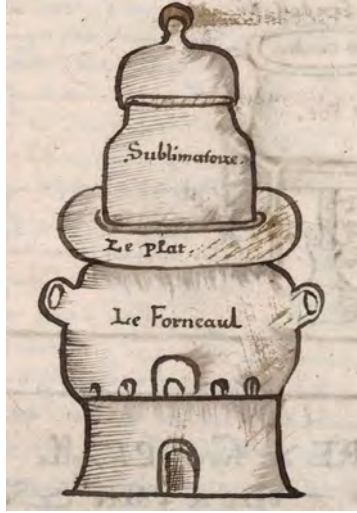 Sublimatoire.
Le plat.
Le Forneaul